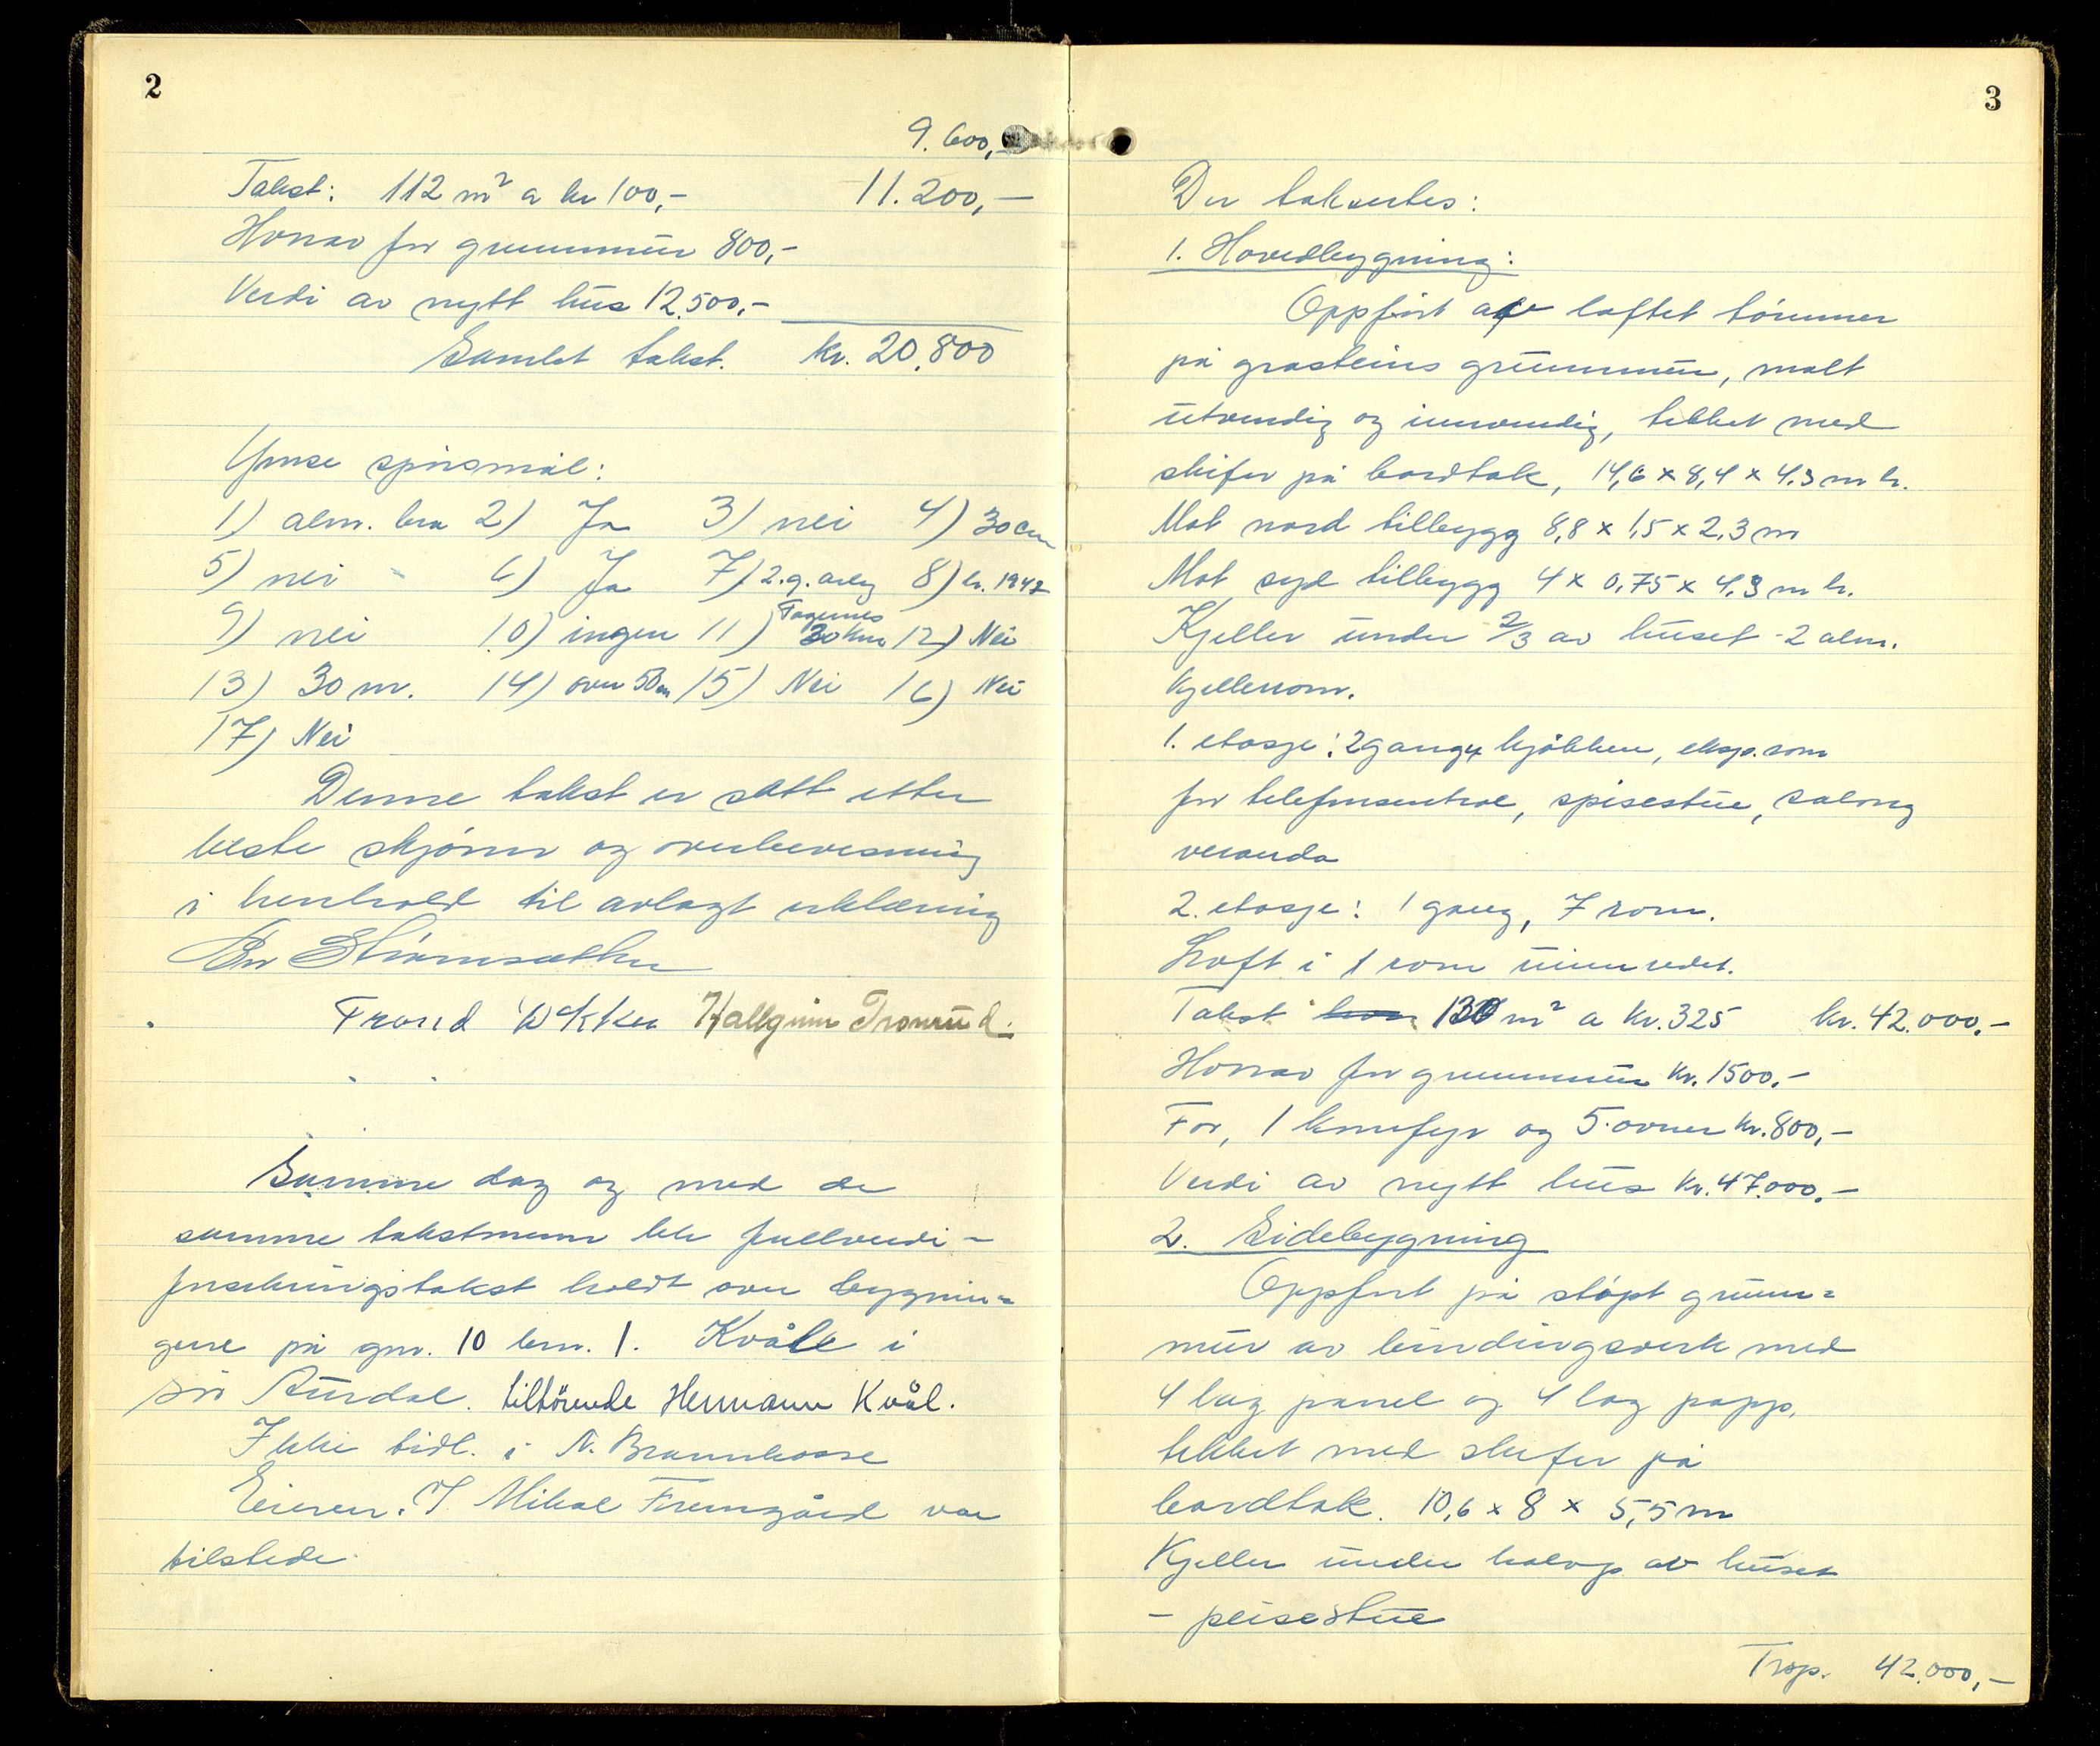 2
9.600,-
Takst: 112 m² a kr 100,- 11.200,-
Horrav for grunnmur 800,-
Verdi av nytt hus 12.500,-
Samlet takst. kr. 20.800
Ymse spørsmål:
1) alm. bra 2) Ja 3) nei 4) 30 cm
5) nei 6) Ja 7) 2.g. årlig 8) kr. 1942
Fagernes
9) nei 10) ingen 11) 30 km 12) Nei
13) 30 m. 14) over 50 m 15) Nei 16) Nei
17) Nei
Denne takst er satt etter
beste skjønn og overbevisning
i henhold til avlagt erklæring
Strømsæther
Trond Økken Hallgrim Tronrud.
Samme dag og med de
samme takstmenn ble fullverdi-
forsikringstakst holdt over bygnin=
gene på gnr. 10 brn. 1. Kvåle i
Sør Aurdal. tilhörende Hermann Kvål.
Ikke tidl. i N. Brannkasse
Eieren. J Mikal Fremgård var
tilstede.
3
Der takseres:
1. Hovedbygning:
Oppført av laftet tømmer
på grasteins grunnmur, malt
utvendig og innvendig, tekket med
skifer på bordtak, 14,6 x 8,4 x 4.3 m h.
Mot nord tilbygg 8,8 x 1,5 x 2,3 m
Mot syd tilbygg 4 x 0,75 x 4,3 m h.
Kjeller under 2/3 av huset - 2 alm.
kjellerrom.
1. etasje: 2 ganger kjøkken, eksp. rom
for telefonsentral, spisestue, salong
veranda
2. etasje: 1 gang, 7 rom.
Loft i 1 rom uinnredet.
Takst 130 m² a kr. 325 kr. 42.000.-
Horrav for grunnmur kr. 1500.-
For, 1 komfyr og 5 ovner kr. 800,-
Verdi av nytt hus kr. 47.000.-
2. Sidebygning
Oppført på støpt grunn=
mur av bindingsverk med
4 lag panel og 4 lag papp,
tekket med skifer på
bordtak. 10,6 x 8 x 5,5 m
Kjeller under halvp. av huset
- peisestue
Trsp. 42.000,-